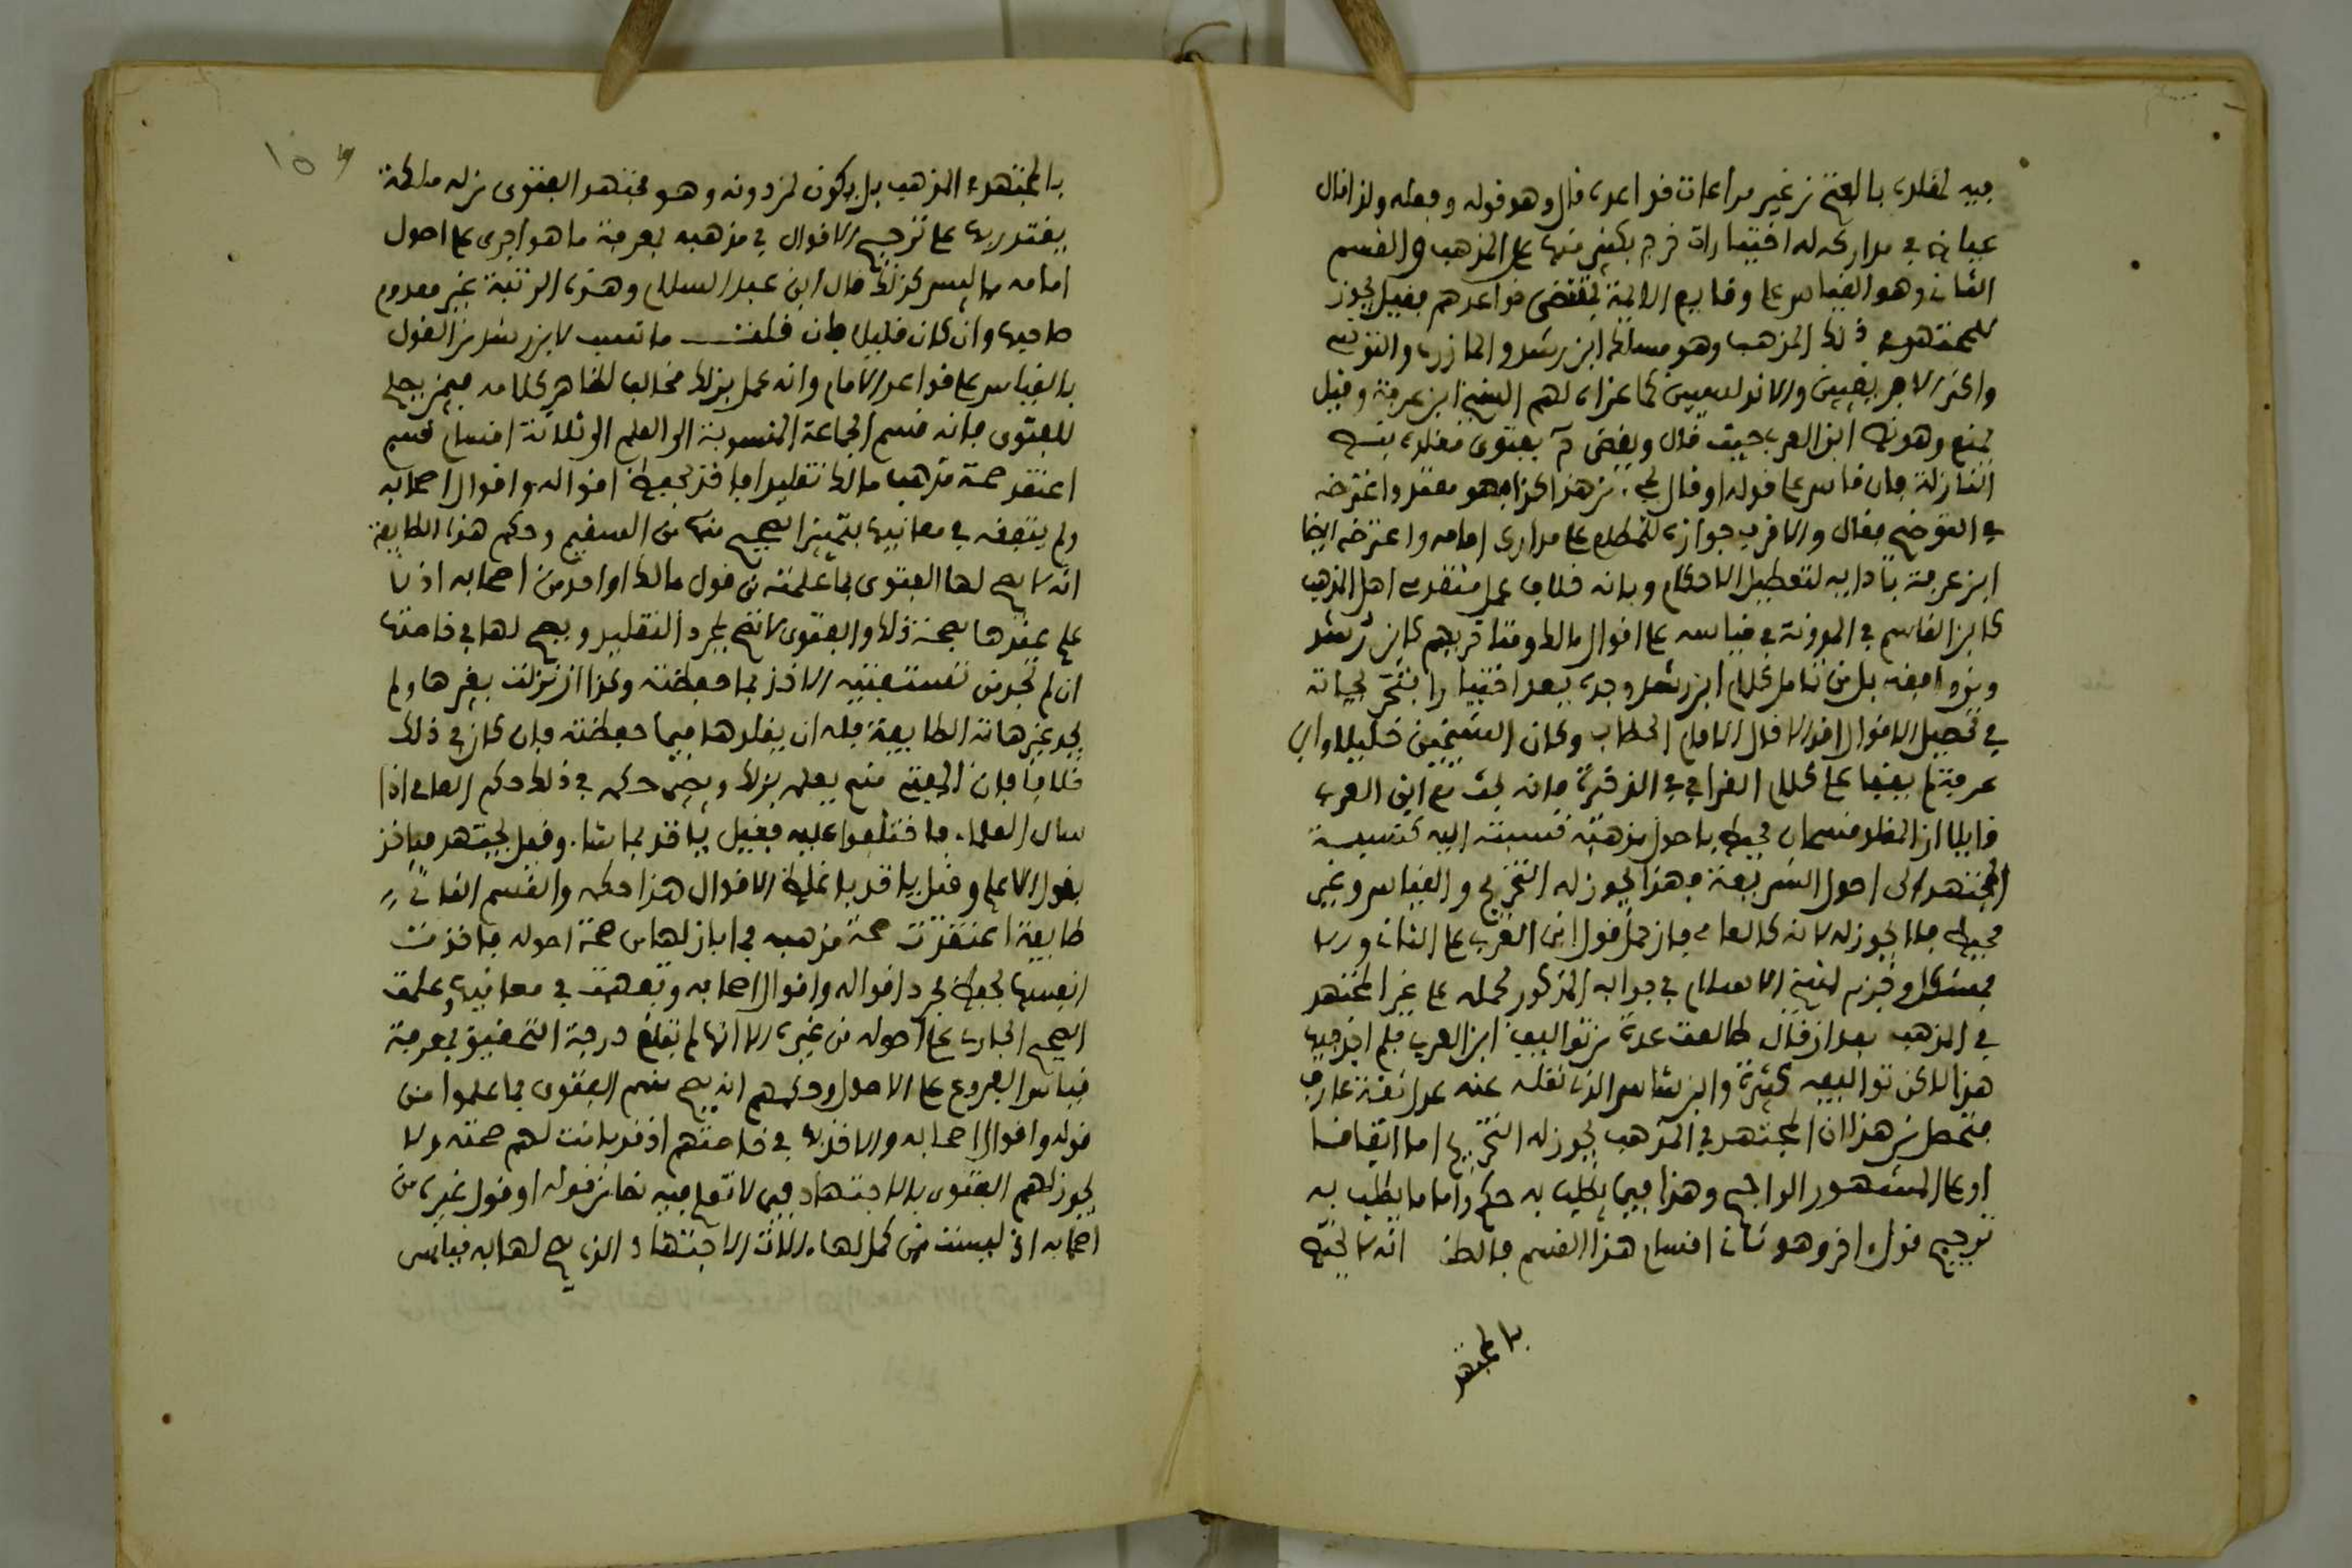 فيه لمقلده بالفتح من غير مراعات قواعده قال وهو قوله وفعله ولذا قال
عياض في مداركه له اختيارات خرج بكثير منها على المذهب والقسم
الثاني وهو القياس على وقايع الايمة بمقتضى قواعدهم فقيل يجوز
للمجتهد في ذلك المذهب وهو مسلك ابن رشد والمازري والتونسي
واكثر الافريقيين والاندلسيين كما عزاه لهم الشيخ ابن عرفة وقيل
يمنع وهو نص ابن العربي حيث قال ويقضي ح بفتوى مقلده بنص
النازلة فان قاس على قوله او قال يجيء من هذا كذا فهو متعد واعترضه
في التوضيح فقال والاقرب جوازه للمطلع على مدارك امامه واعترضه ايضا
ابن عرفة بتاديه لتعطيل الاحكام وبانه خلاف عمل متقدمي اهل المذهب
كابن القاسم في المدونة في قياسه على اقوال مالك ومتاخريهم كابن رشد
ونوافقه بل من تامل كلام ابن رشد وجده يعد اختياراته بتخريجاته
في تحصيل الاقوال اقوالا قال الامام الحطاب وكان الشيخين خليلا وابن
عرفة لم يقفا على كلام القرافي في الذخيرة فانه بحث مع ابن العربي
قايلا ان المقلد قسمان محيط باصول مذهبه نسبته اليه كنسبة
المجتهد الى اصول الشريعة فهذا يجوز له التخريج والقياس وغير
محيط فلا يجوز له لانه كالعامي فان حمل قول ابن العربي على الثاني والا
فمشكل وجزم شيخ الاسلام في جوابه المذكور بحمله على غير المجتهد
في المذهب بعد ان قال طالعت عدة من تواليف ابن العربي فلم اجد فيها
هذا لاكن تواليفه كثيرة وابن شاس الذي نقله عنه عدل ثقة عارف
فتحصل من هذا ان المجتهد في المذهب يجوز له التخريج اما اتفاقا
او على المشهور الراجح وهذا فيما يطلب به حكم واما ما يطلب به
ترجيح قول اخر وهو ثاني اقسام هذا القسم فالظن انه لا يختص
بالمجتهد
بالمجتهد في المذهب بل يكون لمن دونه وهو مجتهد الفتوى من له ملكة
يقتدر بها على ترجيح الاقوال في مذهبه بمعرفة ما هو اجرى على اصول
امامه مما ليس كذلك قال ابن عبد السلام وهذه الرتبة غير معدوم
صاحبها وان كان قليلا فان قلت ما نسب لابن رشد من القول
بالقياس على قواعد الامام وانه عمل بذلك مخالف لظاهر كلامه فيمن يصلح
للفتوى فانه قسم الجماعة المنسوبة الى العلم الى ثلاثة اقسام قسم
اعتقد صحة مذهب مالك تقليدا فاخذ بحفظ اقواله واقوال اصحابه
ولم يتفقه في معانيها بتمييز الصحيح منها من السقيم وحكم هذه الطايفة
انه لا يصح لها الفتوى بما علمته من قول مالك او احد من اصحابه اذ لا
علم عندها بصحة ذلك والفتوى لا تصح بمجرد التقليد ويصح لها في خاصتها
ان لم تجد من تستفتيه الاخذ بما حفظته وكذا ان نزلت بغيرها ولم
يجد غير هاته الطايفة فله ان يقلدها فيما حفظته فان كان في ذلك
خلافا فان المفتي منهم يعلمه بذلك ويصير حكمه في ذلك حكم العامي اذا
سال العلماء فاختلفوا عليه فقيل ياخذ بما شاء وقيل يجتهد فياخذ
بقول الاعلم وقيل ياخذ باغلظ الاقوال هذا حكمه والقسم الثاني
طايفة اعتقدت صحة مذهبه لما بان لها من صحة اصوله فاخذت
انفسها بحفظ مجرد اقواله واقوال اصحابه وتفقهت في معانيها وعلمت
الصحيح الجاري على اصوله من غيره الا انها لم تبلغ درجة التحقيق بمعرفة
قياس الفروع على الاصول وحكمهم انه يصح منهم الفتوى بما علموا من
قوله واقوال اصحابه والاخذ به في خاصتهم اذ قد بانت لهم صحته ولا
يجوز لهم الفتوى بالاجتهاد فيما لا تعلم فيه نصا من قوله او قول غيره من
اصحابه اذ ليست ممن كمل لها الات الاجتهاد الذي يصح لها به قياس